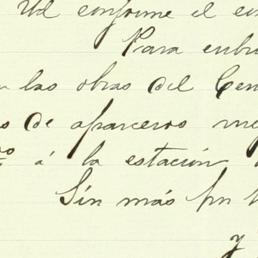 Ud conforme el
Para
las obras del Cen
s de aparceros me
á la estación
Sin más
y